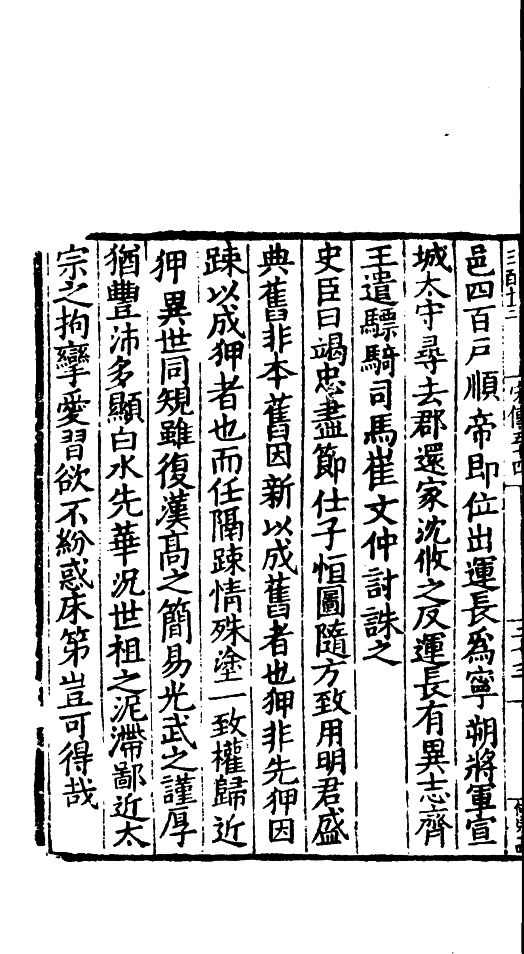 邑四百戸順帝即位出運長爲寧朔將軍宣
城太守尋去郡還家沈攸之反運長有異志齊
王遣驃騎司馬崔文仲討誅之
史臣曰竭忠盡節仕子恒圖隨方致用明君盛
典舊非本舊因新以成舊者也狎非先狎因
踈以成狎者也而任隔踈情殊塗一致權歸近
狎異世同䂓雖復漢髙之簡易光武之謹厚
猶豐沛多顯白水先華况世祖之泥滯鄙近太
宗之拘攣愛習欲不紛惑床笫豈可得哉